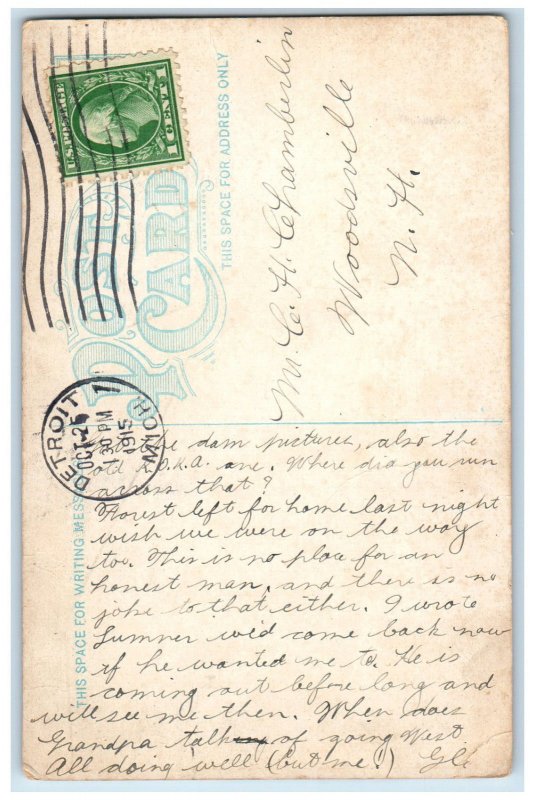 U.S. POSTAGE
1 CENT 1
POST CARD
THIS SPACE FOR ADDRESS ONLY
Mr. C. H. Chamberlin
Woodsville
N. H.
DETROIT 1 MICH
OCT 26
1 30 PM
1915
THIS SPACE FOR WRITING MESS
the dam pictures, also the
old one. Where did you run
across that?
Forest left for home last night
wish we were on the way
too. This is no place for an
honest man, and there is no
joke to that either. I wrote
Sumner we'd come back now
if he wanted me to. He is
coming out before long and
will see me then. When does
Grandpa talk of going West
All doing well (but me.)